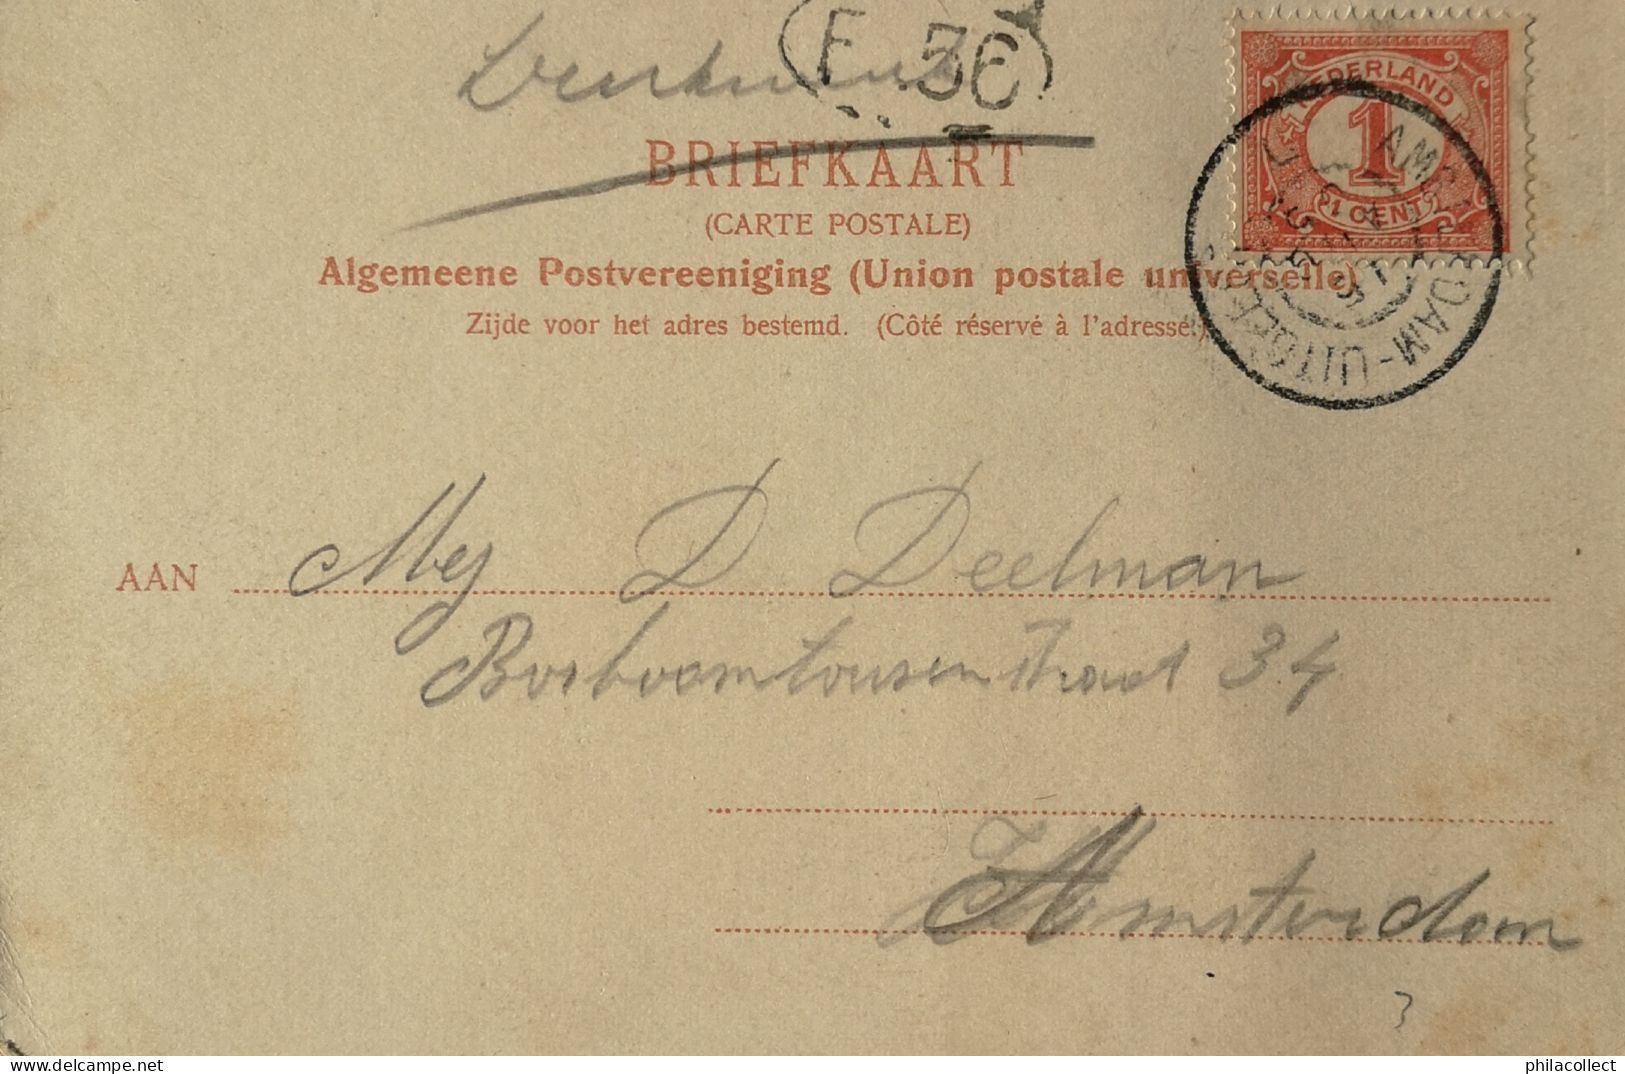 F 36
BRIEFKAART
(CARTE POSTALE)
Algemeene Postvereeniging (Union postale universelle)
Zijde voor het adres bestemd. (Côté réservé à l'adresse.)
NEDERLAND
1
1 CENT
AMSTERDAM-UITGEEST
AAN Mej D Deelman
Bosboomtousenstraat 34
Amsterdam
3
philacollect